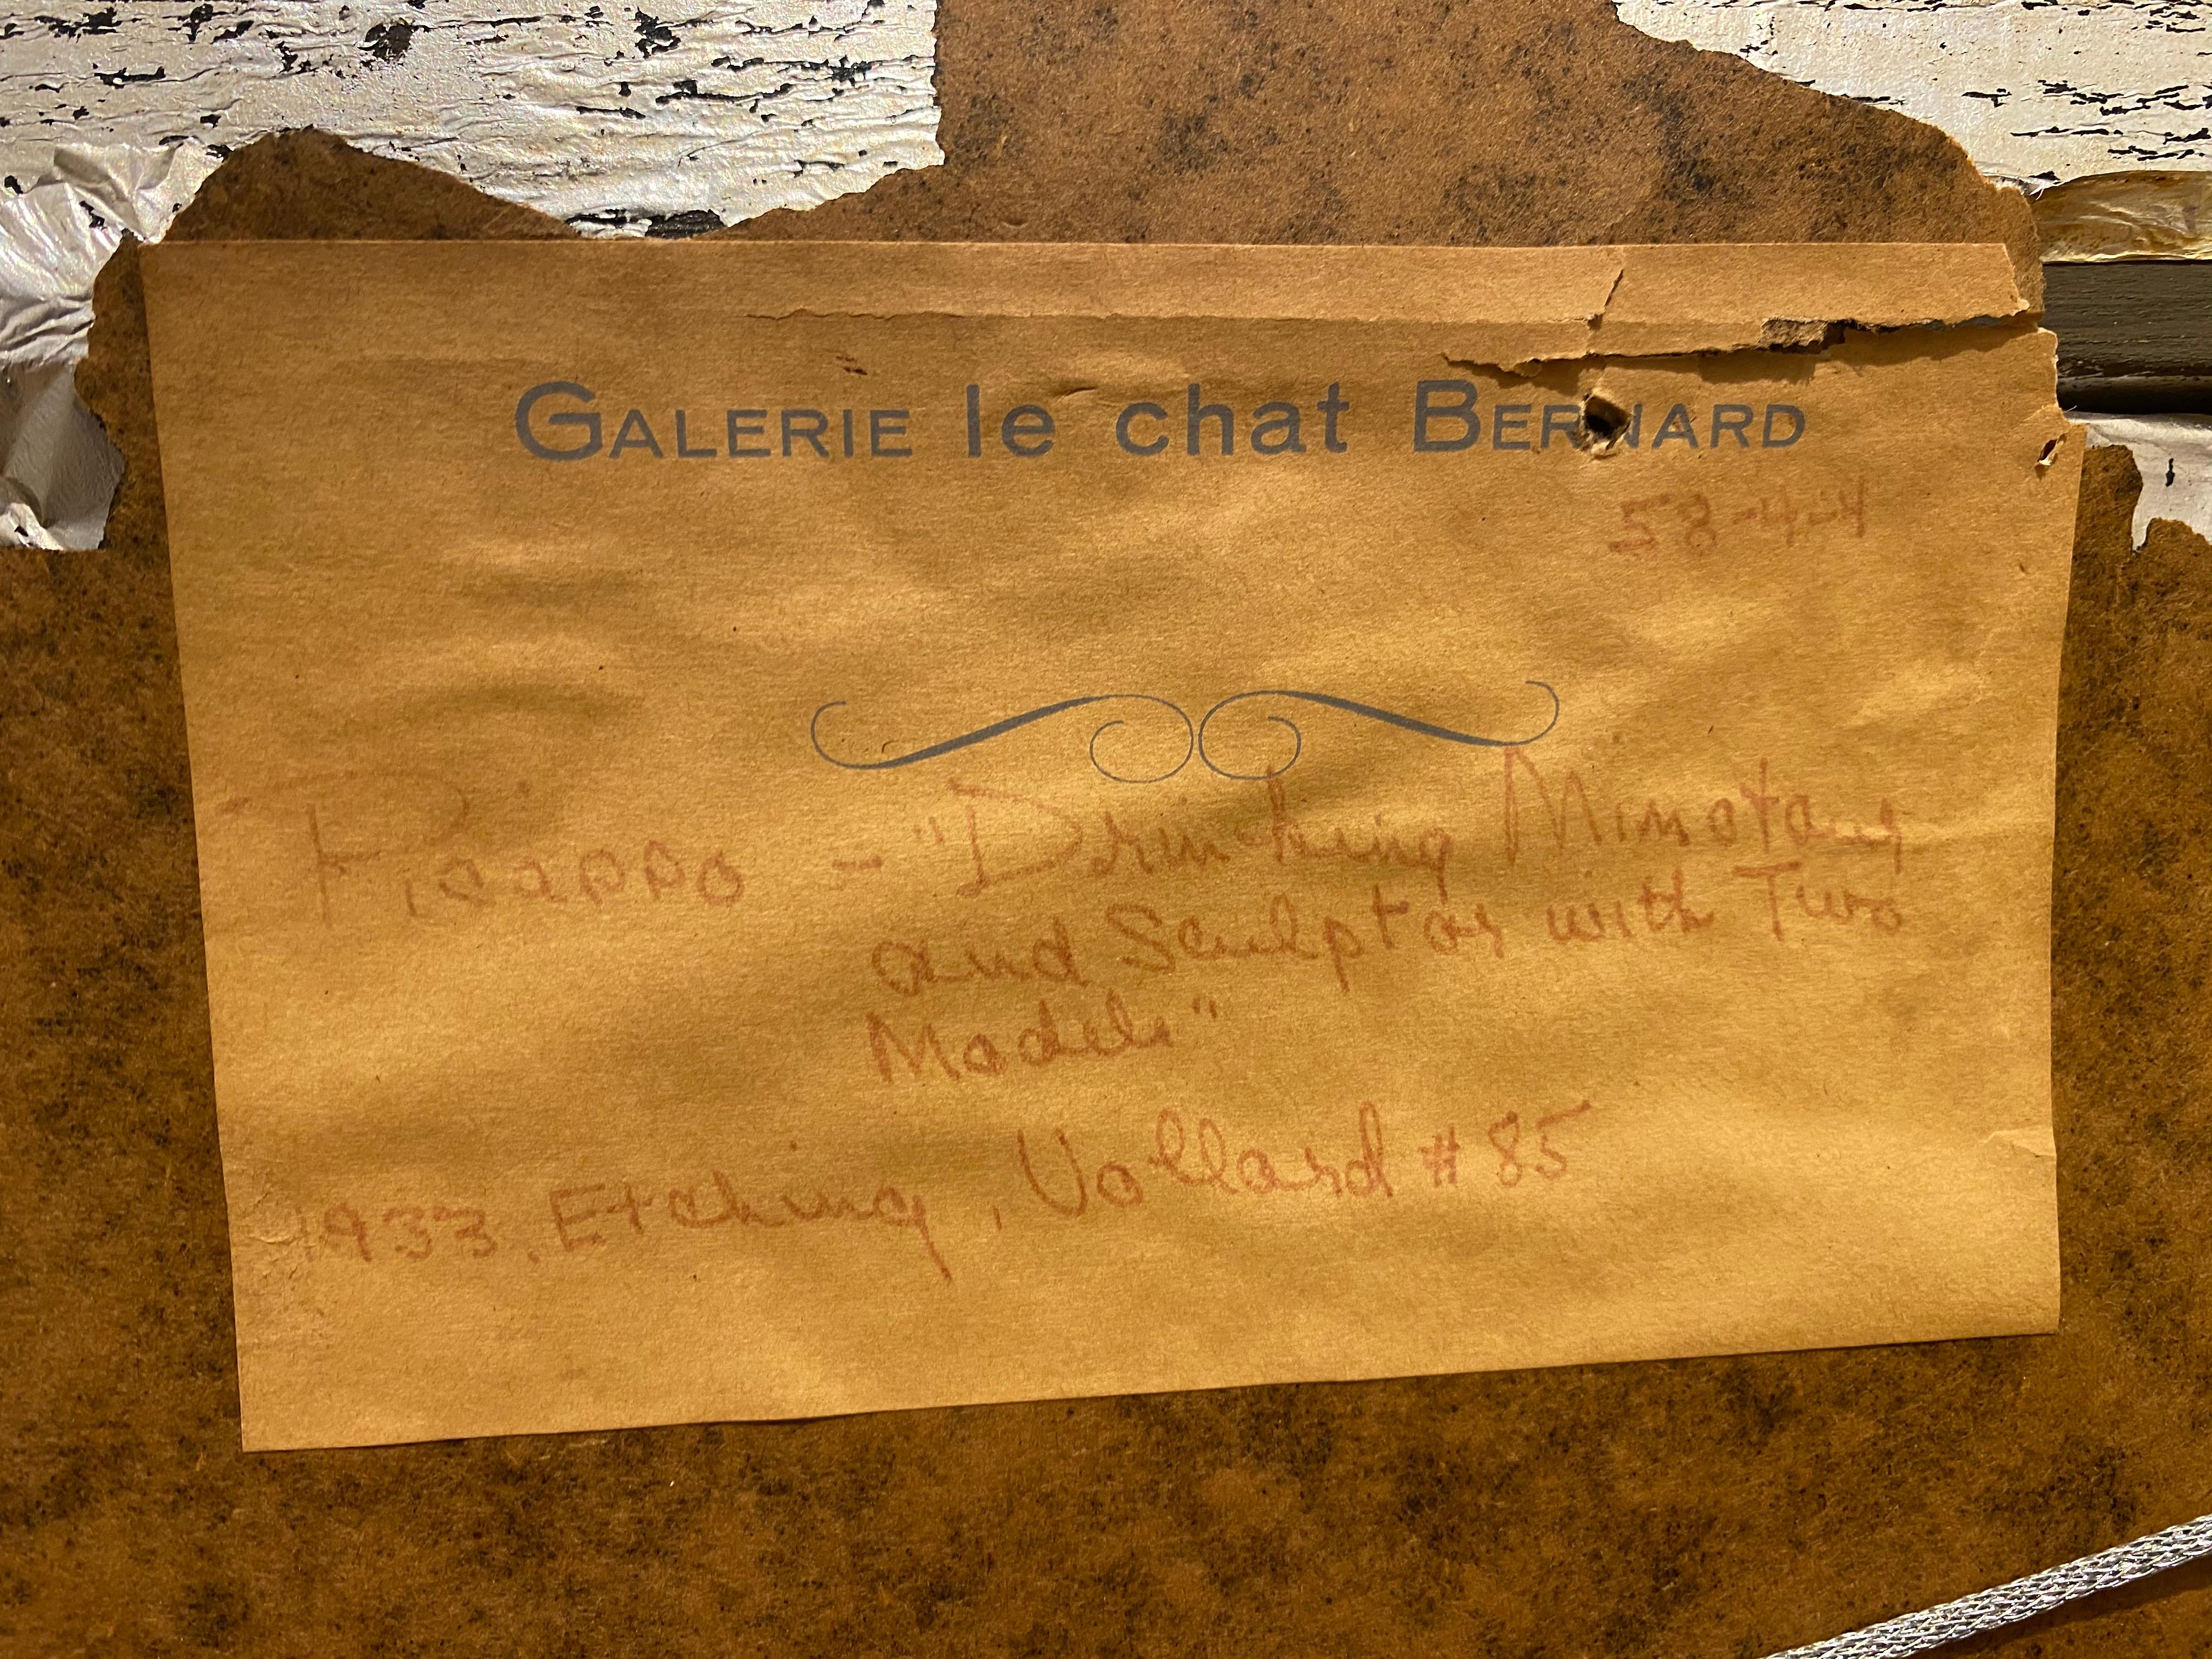 GALERIE le chat BERNARD
58-4-4
Picasso - "Drinking Minotaur
and Sculptor with Two
Models"
1933. Etching, Vollard # 85